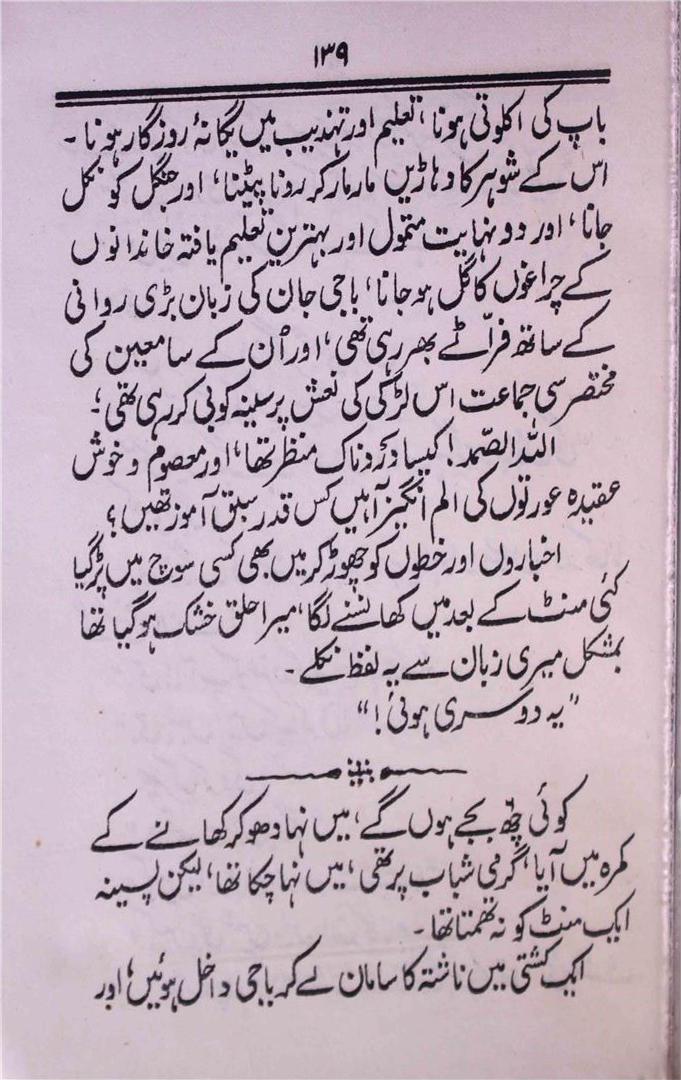 ۱۳۹
باپ کی اکلوتی ہونا، تعلیم اور تہذیب میں یگانۂ روزگار ہونا۔
اس کے شوہر کا دہاڑیں مار مار کر رونا پیٹنا، اور جنگل کو نکل
جانا، اور دو نہایت متمول اور بہترین تعلیم یافتہ خاندانوں
کے چراغوں کا گل ہو جانا، باجی جان کی زبان بڑی روانی
کے ساتھ فراٹے بھر رہی تھی، اور اُن کے سامعین کی
مختصر سی جماعت اس لڑکی کی نعش پر سینہ کوبی کر رہی تھی؛
اللہ الصمد! کیسا دردناک منظر تھا، اور معصوم و خوش
عقیدہ عورتوں کی الم انگیز آہیں کس قدر سبق آموز تھیں؟
اخباروں اور خطوں کو چھوڑ کر میں بھی کسی سوچ میں پڑ گیا
کئی منٹ کے بعد میں کھانسنے لگا، میرا حلق خشک ہو گیا تھا
بمشکل میری زبان سے یہ لفظ نکلے۔
"یہ دوسری ہوئی!"
کوئی چھ بجے ہوں گے، میں نہا دھو کر کھانے کے
کمرہ میں آیا، گرمی شباب پر تھی، میں نہا چکا تھا، لیکن پسینہ
ایک منٹ کو نہ تھمتا تھا۔
ایک کشتی میں ناشتہ کا سامان لے کر باجی داخل ہوئیں، اور